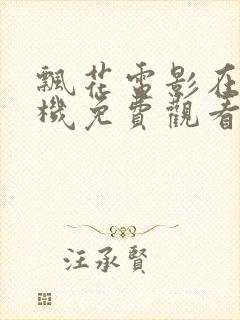 飄花電影在
機免費觀看
汪承賢